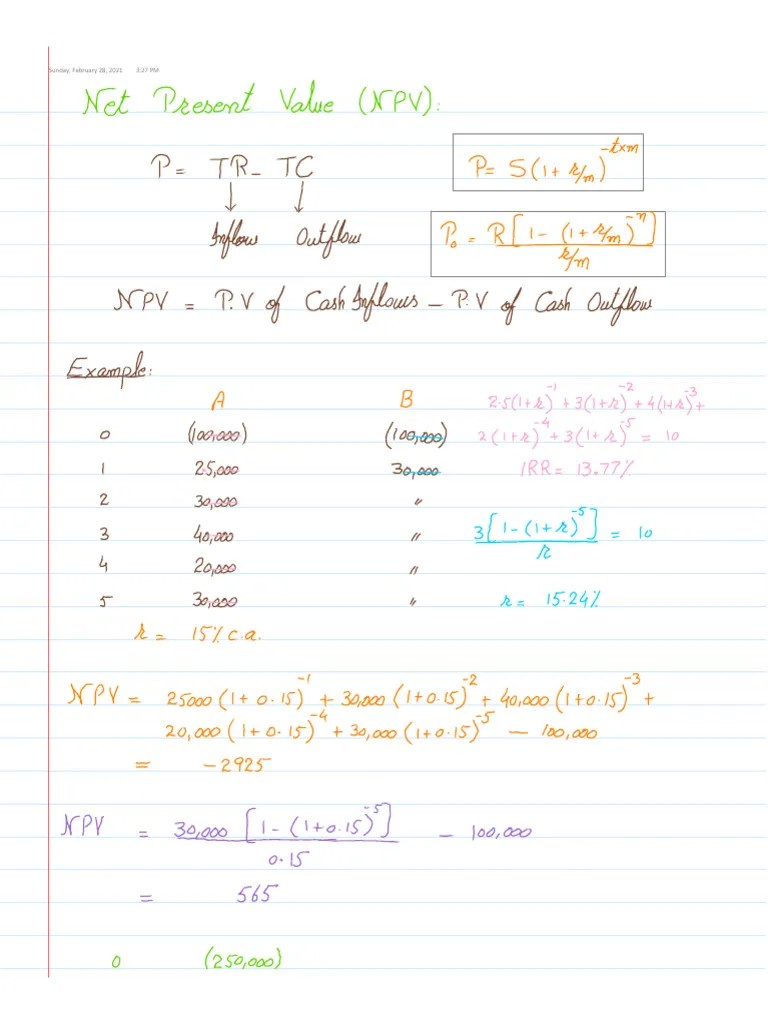 Sunday, February 28, 2021 3:27 PM
Net Present Value (NPV):
P = TR - TC
P = S(1 + r/m)^-t×m
↓ ↓
Inflow Outflow
P₀ = R[1 - (1 + r/m)^-n] / r/m
NPV = P.V of Cash Inflows - P.V of Cash Outflow
Example:
A B
2.5(1+r)^-1 + 3(1+r)^-2 + 4(1+r)^-3 +
0 (100,000) (100,000)
2(1+r)^-4 + 3(1+r)^-5 = 10
1 25,000 30,000
IRR = 13.77%
2 30,000 "
3 40,000 "
3[1-(1+r)^-5] / r = 10
4 20,000 "
5 30,000 "
r = 15.24%
r = 15% c.a.
NPV = 25000(1+0.15)^-1 + 30,000(1+0.15)^-2 + 40,000(1+0.15)^-3 +
20,000(1+0.15)^-4 + 30,000(1+0.15)^-5 - 100,000
= -2925
NPV = 30,000[1-(1+0.15)^-5] / 0.15 - 100,000
= 565
0 (250,000)